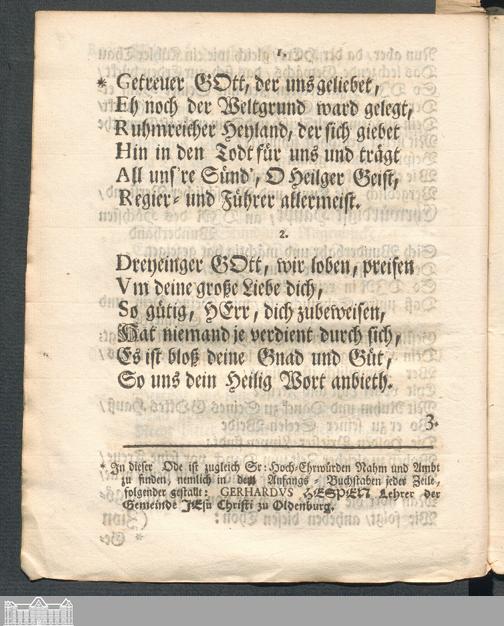 1.
* Getreuer GOtt, der uns geliebet,
Eh noch der Weltgrund ward gelegt,
Ruhmreicher Heyland, der sich giebet
Hin in den Todt für uns und trägt
All uns're Sünd', O Heilger Geist,
Regier- und Führer allermeist.
2.
Dreyeinger GOtt, wir loben, preisen
Vm deine große Liebe dich,
So gütig, HErr, dich zubeweisen,
Hat niemand je verdient durch sich,
Es ist bloß deine Gnad und Güt,
So uns dein Heilig Wort anbieth.
3.
* In dieser Ode ist zugleich Sr: Hoch-Ehrwürden Nahm und Ambt
zu finden, nemlich in den Anfangs-Buchstaben jeder Zeile,
folgender gestalt: GERHARDVS HESPEN Lehrer der
Gemeinde JEsu Christi zu Oldenburg.